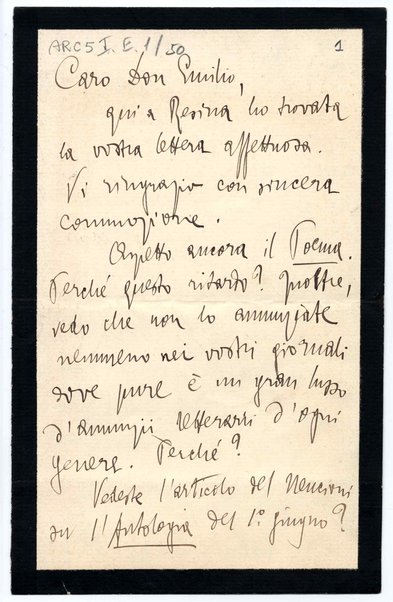 ARC5 I. E. 1/50
1
Caro Don Emilio,
qui a Resina ho trovata
la vostra lettera affettuosa.
Vi ringrazio con sincera
commozione.
Aspetto ancora il Poema.
Perché questo ritardo? Inoltre,
vedo che non lo annunziate
nemmeno nei vostri giornali
dove pure è un gran lusso
d'annunzii letterarii d'ogni
genere. Perché?
Vedeste l'articolo del Nencioni
su l'Antologia del 1º giugno?